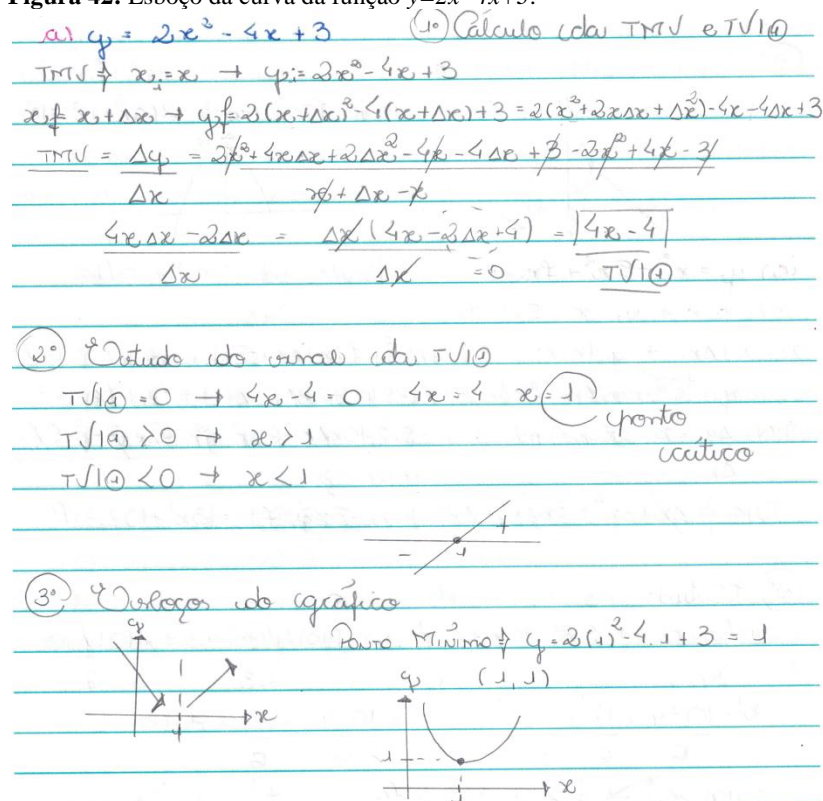 Figura 42: Esboço da curva da função y=2x²-4x+3.
a) y = 2x² - 4x + 3 (1º) Cálculo da TMV e TVI(1)
TMV → xi = x → yi = 2x² - 4x + 3
xf = x + Δx → yf = 2(x+Δx)² - 4(x+Δx) + 3 = 2(x² + 2xΔx + Δx²) - 4x - 4Δx + 3
TMV = Δy = 2x² + 4xΔx + 2Δx² - 4x - 4Δx + 3 - 2x² + 4x - 3
Δx x + Δx - x
4xΔx - 2Δx = Δx (4x - 2Δx + 4) = 4x - 4
Δx Δx = 0 TVI(1)
(2º) Estudo do sinal da TVI(1)
TVI(1) = 0 → 4x - 4 = 0 4x = 4 x = 1
ponto
crítico
TVI(1) > 0 → x > 1
TVI(1) < 0 → x < 1
+
- 1
(3º) Esboços do gráfico
y
Ponto Mínimo → y = 2(1)² - 4.1 + 3 = 1
y (1,1)
x
1
1
x
1